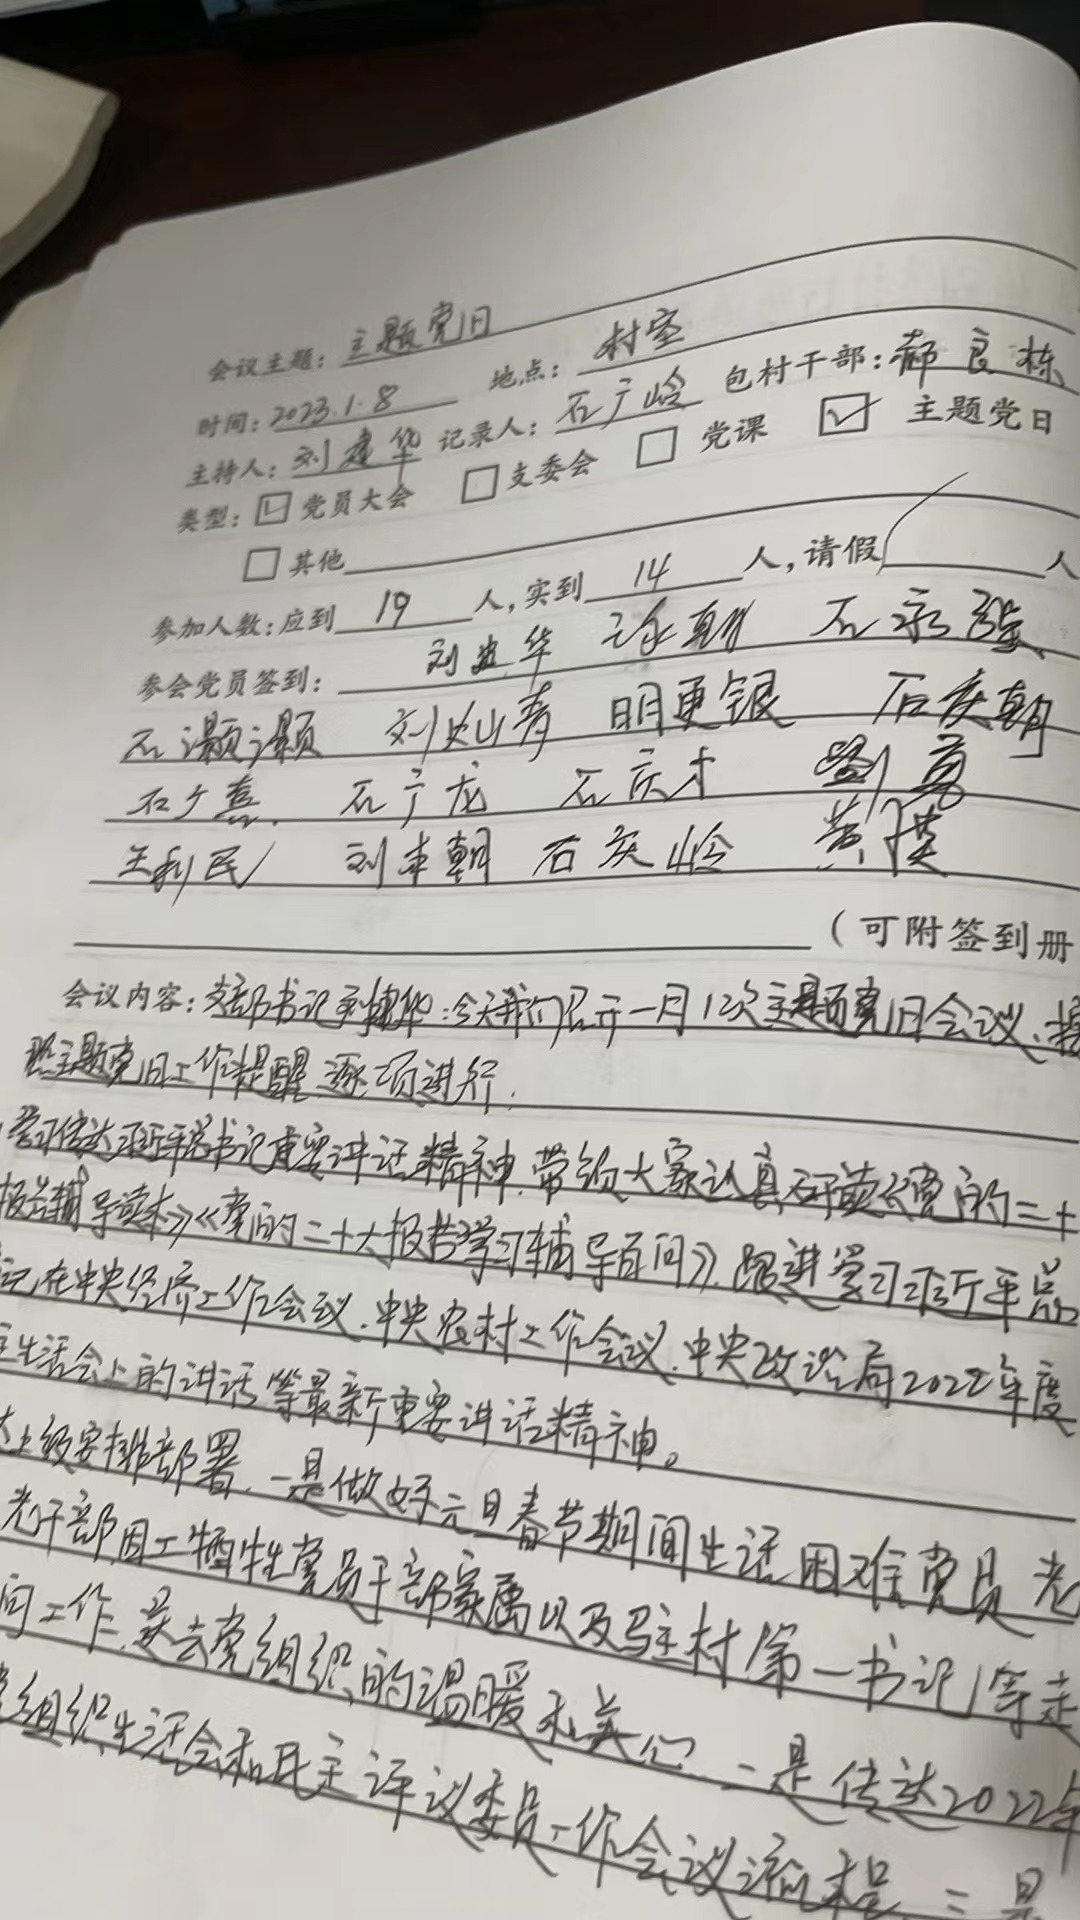 会议主题：主题党日
时间：2023.1.8 地点：村室
主持人：刘建华 记录人：石广岭 包村干部：郝良栋
类型：☑党员大会 □支委会 □党课 ☑主题党日
□其他
参加人数：应到 19 人，实到 14 人，请假 人
参会党员签到：刘建华 石永强
石灏灏 刘灿青 明更银 石庆朝
石广熹 石广龙 石庆才
王利民 刘丰朝 石庆岭 黄
（可附签到册
会议内容：支部书记刘建华：今天我们召开一月12次主题党日会议、按
照主题党日工作提醒逐项进行.
学习传达习近平总书记重要讲话精神.带领大家认真研读《党的二十
报告辅导读本》《党的二十大报告学习辅导百问》.跟进学习习近平总
记在中央经济工作会议.中央农村工作会议.中央政治局2022年度
主生活会上的讲话等最新重要讲话精神。
达上级安排部署.一是做好元旦春节期间生活困难党员 老
老干部因工牺牲党员干部家属以及驻村第一书记等走
问工作.送去党组织的温暖和关心 二是传达2022年
党组织生活会和民主评议党员工作会议流程 三是